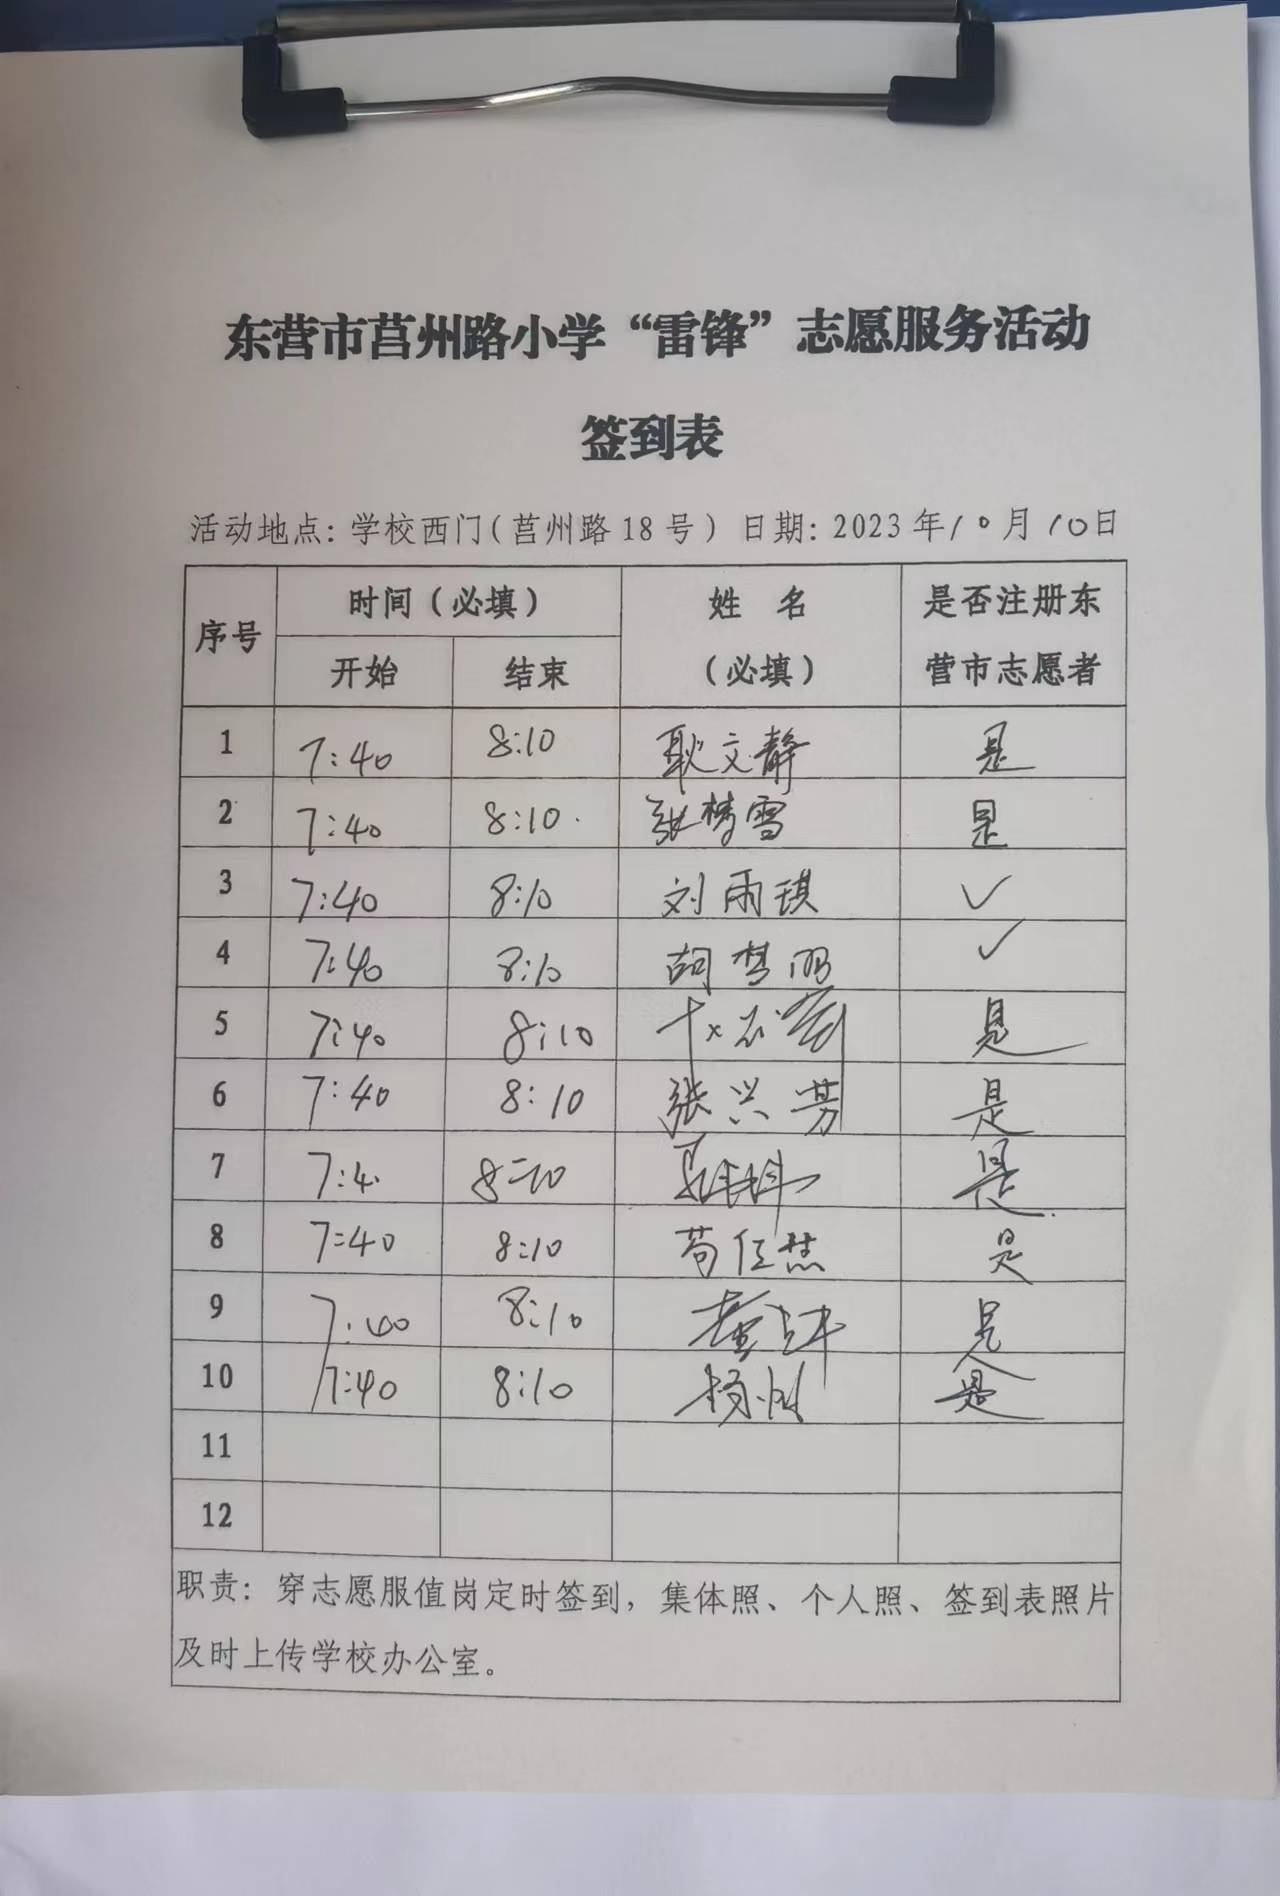 东营市莒州路小学“雷锋”志愿服务活动
签到表
活动地点: 学校西门(莒州路18号) 日期: 2023年10月10日
序号 时间(必填) 姓 名 是否注册东
开始 结束 (必填) 营市志愿者
1 7:40 8:10 耿文静 是
2 7:40 8:10. 张梦雪 是
3 7:40 8:10 刘雨琪 ✓
4 7:40 8:10 胡梦丽 ✓
5 7:40 8:10 是
6 7:40 8:10 张兴芳 是
7 7:4 8:10 是
8 7:40 8:10 苟任慧 是
9 7:40 8:10 董 是
10 7:40 8:10 杨州 是
11
12
职责: 穿志愿服值岗定时签到, 集体照、个人照、签到表照片
及时上传学校办公室。